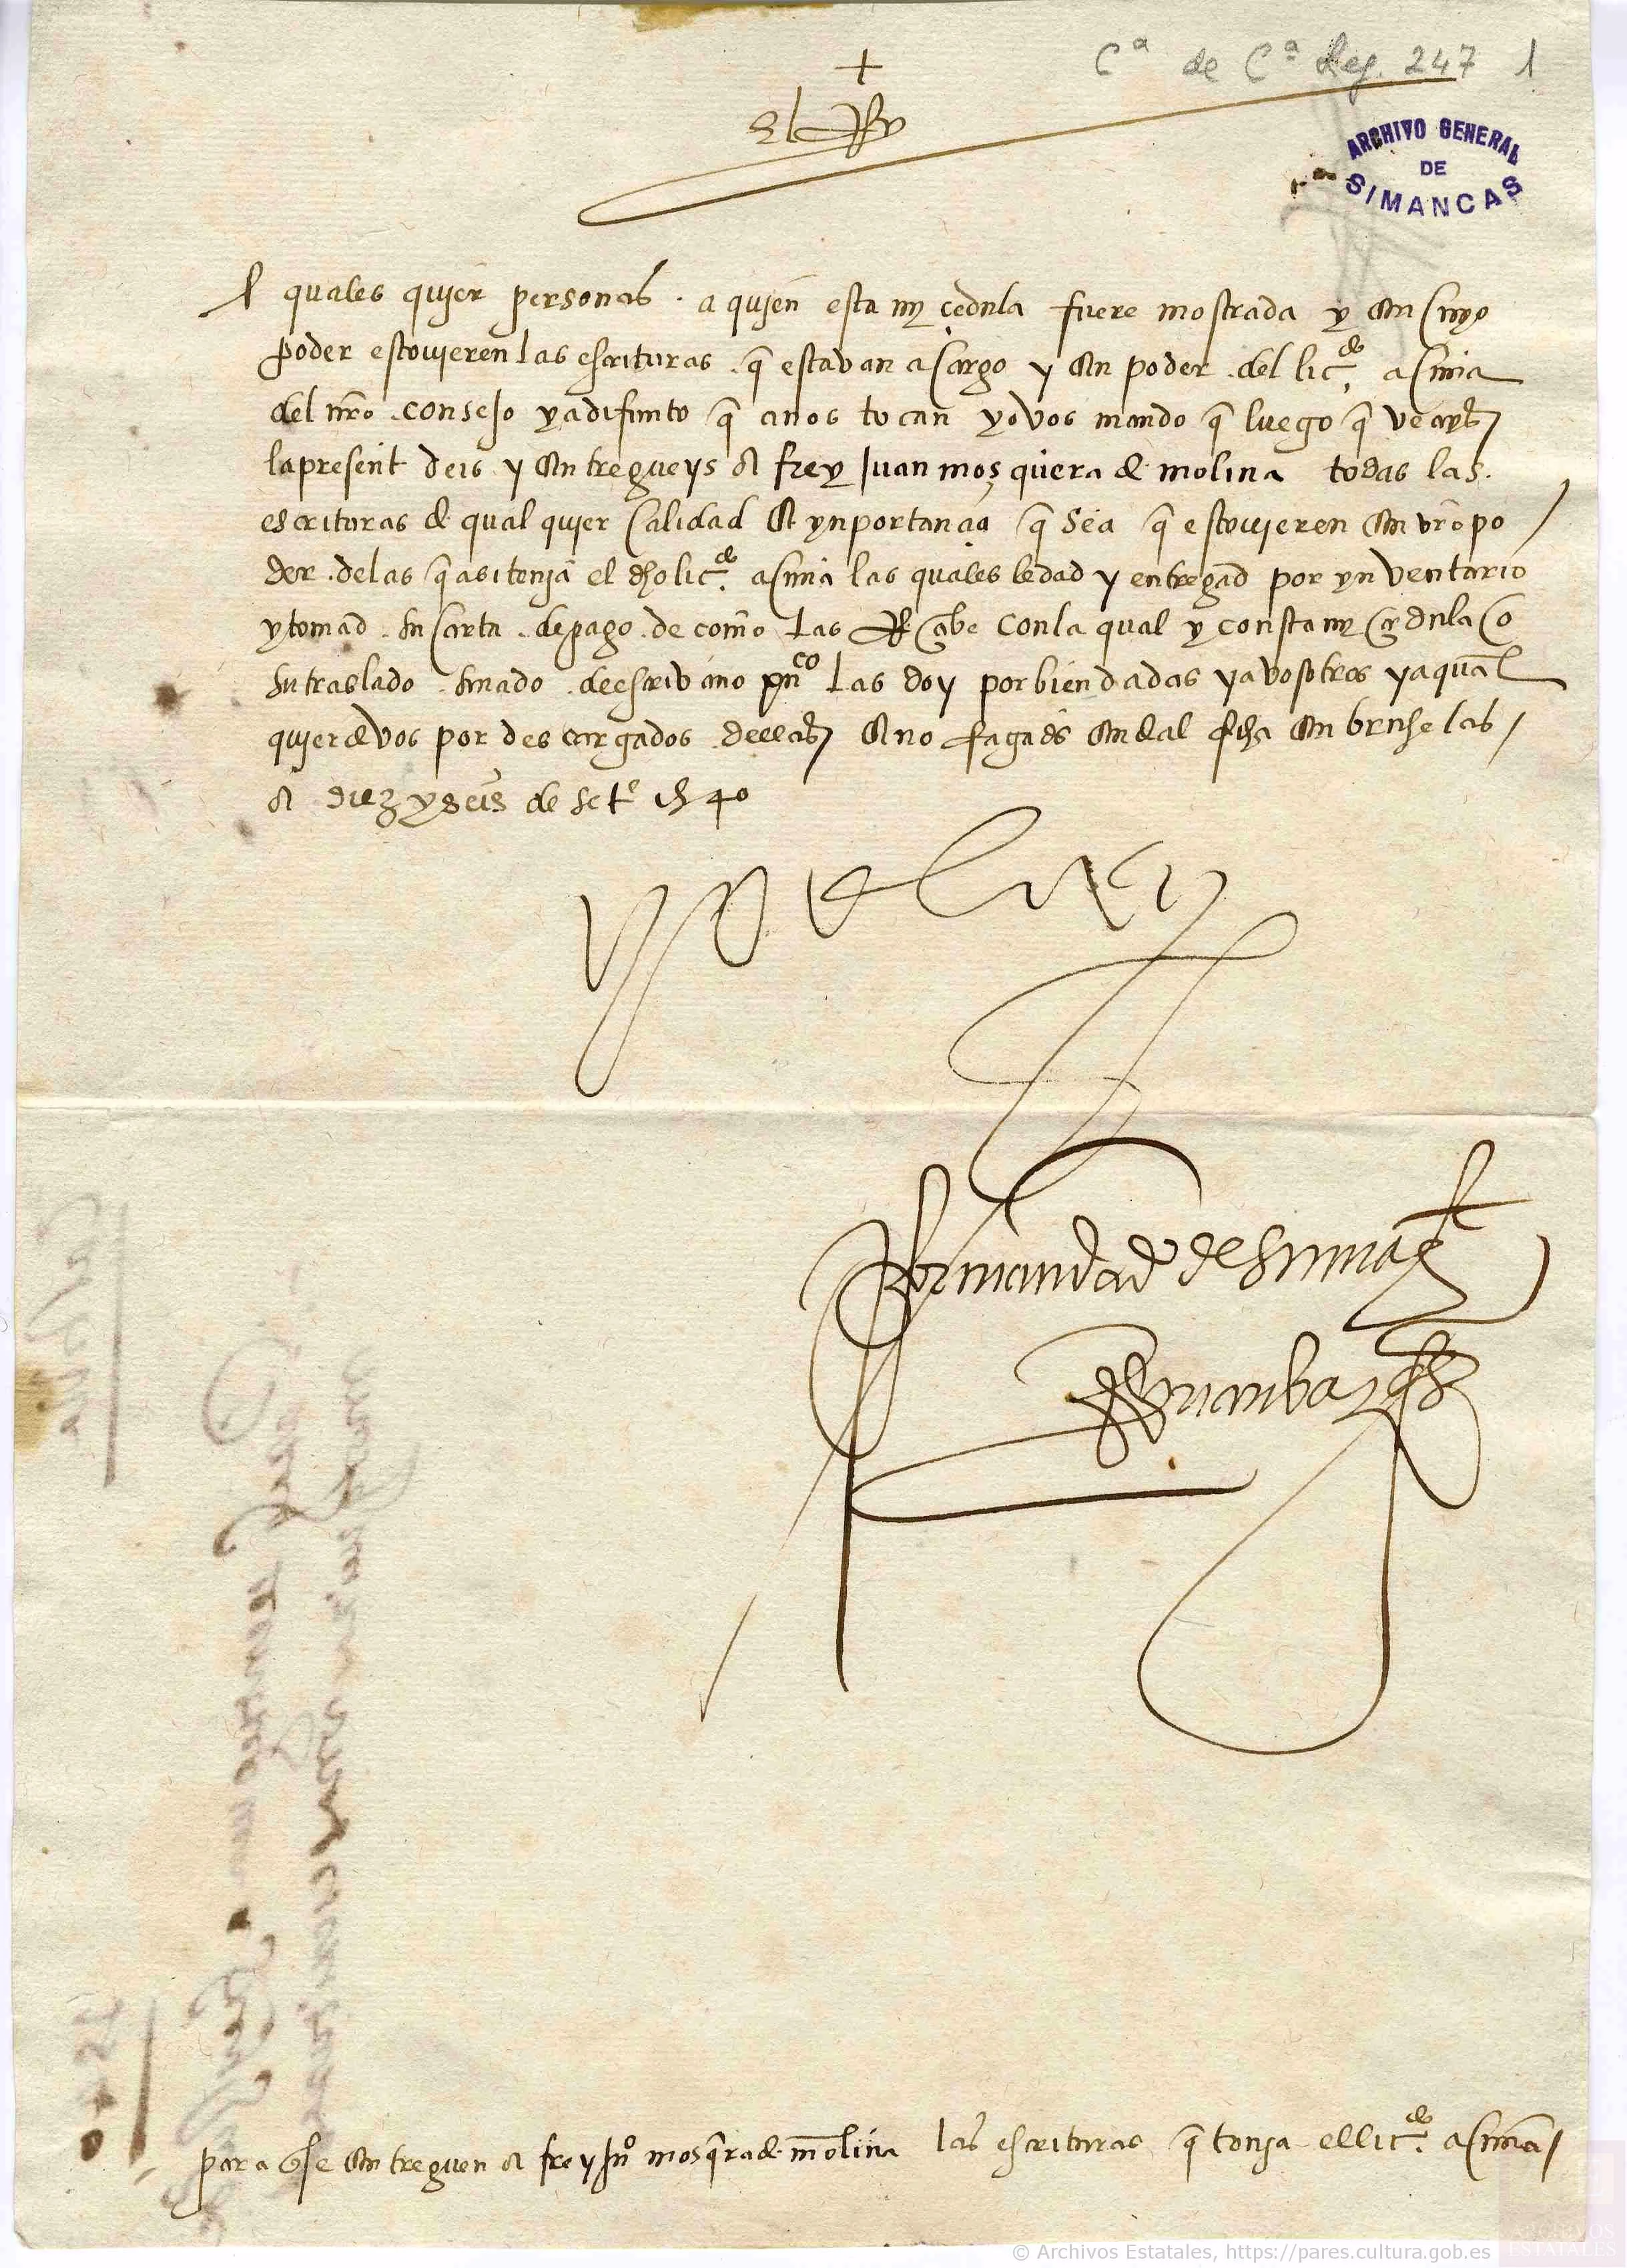 Cª de Cª Leg. 247 1
+
El Rey
ARCHIVO GENERAL
DE
SIMANCAS
A quales quier personas . a quien esta my çedula fuere mostrada y en cuyo
poder estovieren las escrituras . q̄ estavan a cargo y en poder . del licdo. acuña
del nr̄o . consejo ya difunto q̄ a nos tocan yo vos mando q̄ luego q̄ veays
la present deis y entregueys a frey Juan mosquera de molina todas las .
escrituras de qual quier calidad e ynportançia q̄ sea q̄ estovieren en vr̄o po
der . de las q̄ asi tenja el dho licdo. acuña las quales le dad y entregad por ynventario
y tomad . su carta . de pago . de como las Reçibe con la qual y con esta my çedula o
su traslado . sinado . de escrivano puco las doy por bien dadas y a vosotros y a qual
quier de vos por descargados . dellas e no fagades ende al fcha en bruselas /
a diez y seis de sete 1540
yo el rey
Por mandado de su mat
para q̄ se entreguen a frey Juo mosq̄ra de molina las escrituras q̄ tenja el licdo. acuña /
© Archivos Estatales, https://pares.cultura.gob.es
ARCHIVOS
ESTATALES